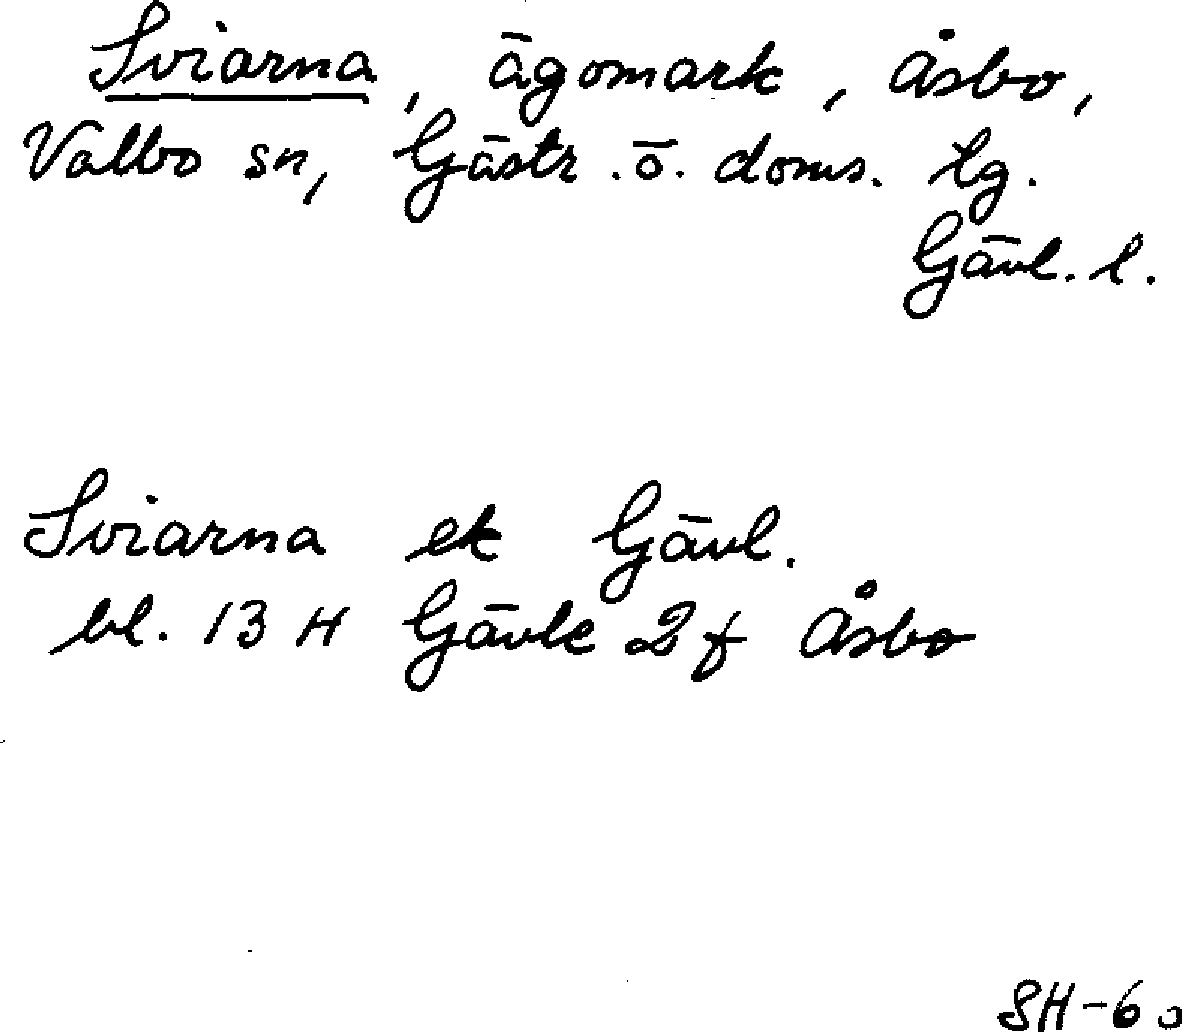 Sviarna, ägomark, Åsbo,
Valbo sn, Gästr. ö. doms. lg.
Gävl. l.
Sviarna ek Gävl.
bl. 13 H Gävle 2 f Åsbo
SH-60